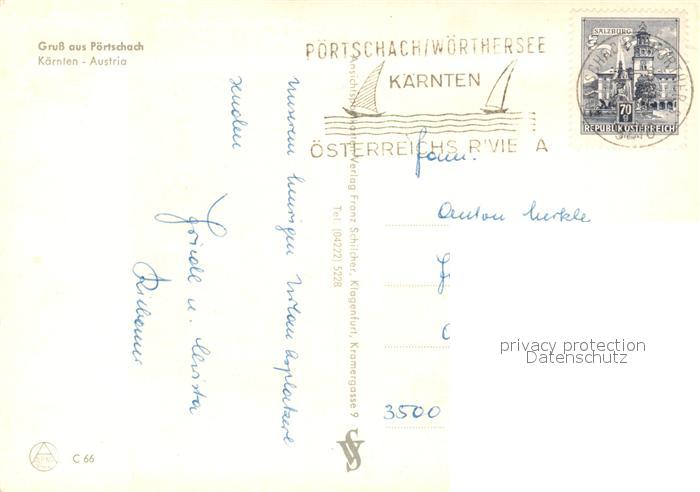 Gruß aus Pörtschach
Kärnten - Austria
PÖRTSCHACH/WÖRTHERSEE
KÄRNTEN
ÖSTERREICHS R'VIE A
SALZBURG
70
REPUBLIK ÖSTERREICH
Ansichtskarten-Verlag Franz Schilcher, Klagenfurt, Kramergasse 9
Tel. (04222) 5228
unserem heurigen Urlaubsplatzerl
senden
Friedl u.
Fam.
Anton Merkle
3500
privacy protection
Datenschutz
C 66